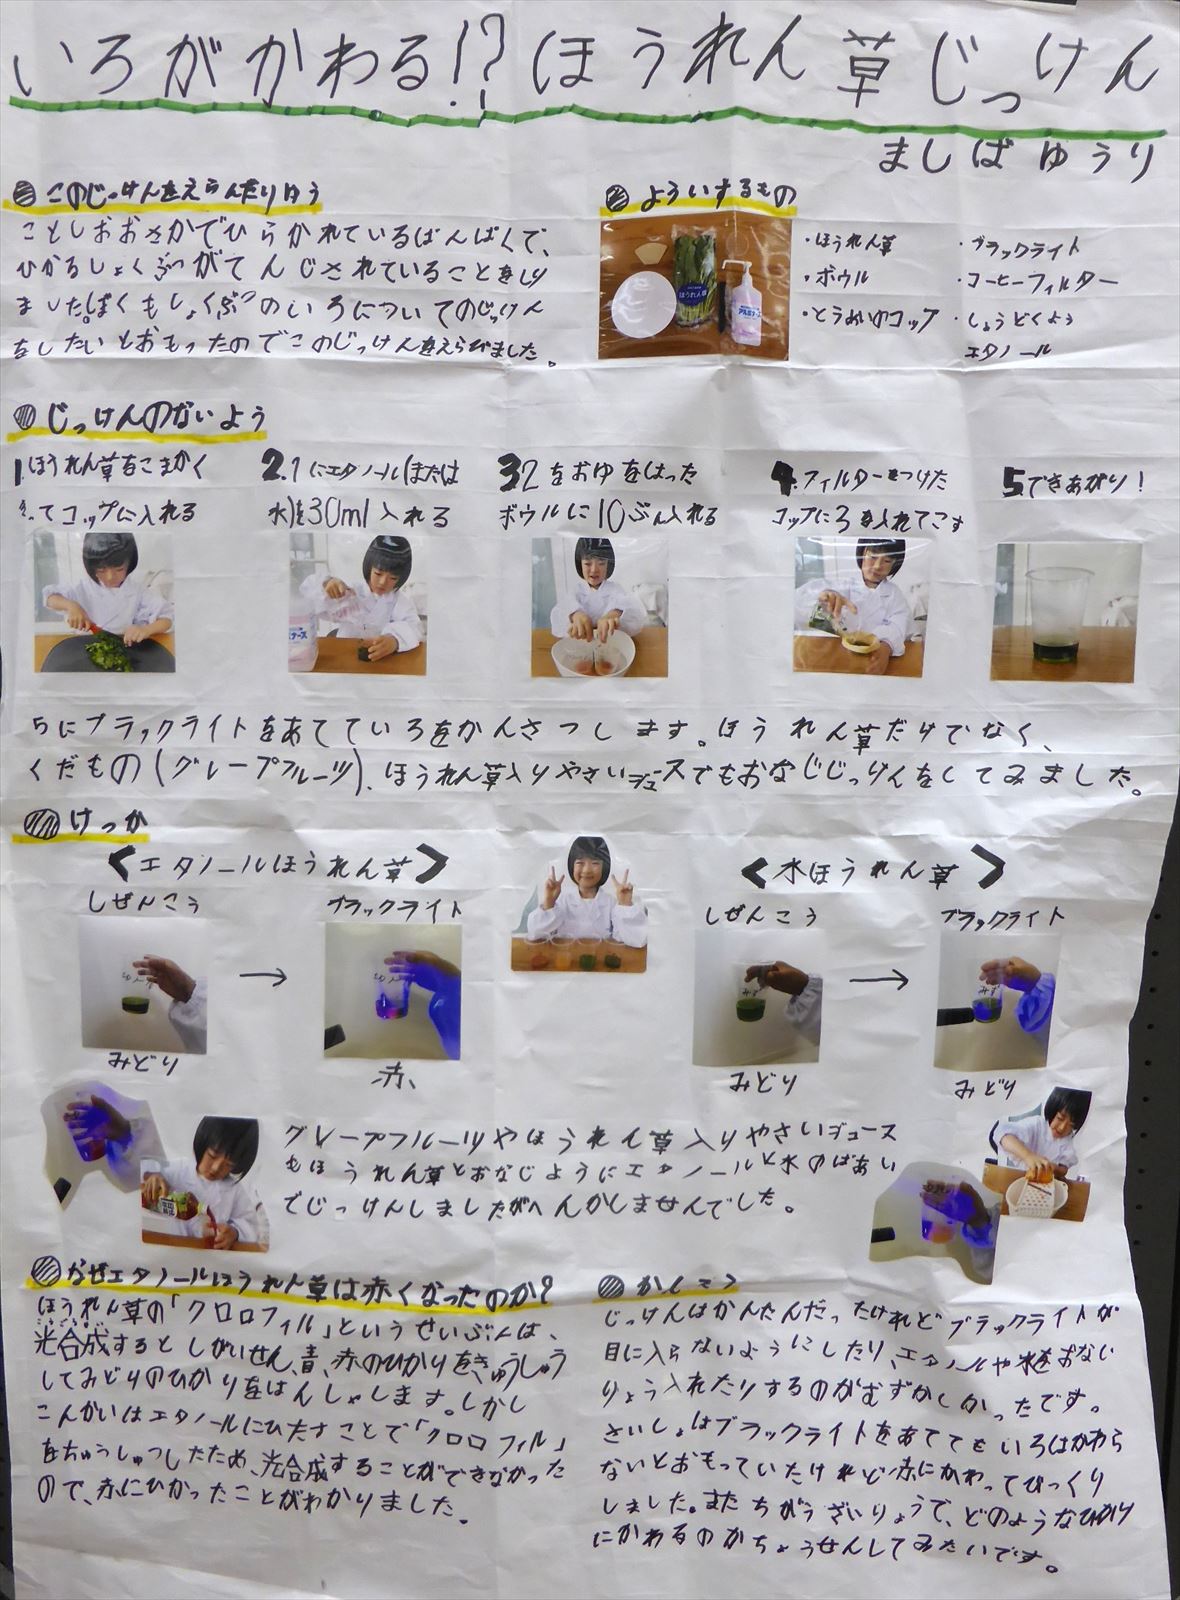 いろがかわる!?ほうれん草じっけん
ましば ゆうり
このじっけんをえらんだりゆう
ことしおおさかでひらかれているばんぱくで、
ひかるしょくぶつがてんじされていることをしり
ました。ぼくもしょくぶつのいろについてのじっけん
をしたいとおもったのでこのじっけんをえらびました。
よういするもの
・ほうれん草
・ボウル
・とうめいのコップ
・ブラックライト
・コーヒーフィルター
・しょうどくよう
エタノール
ほうれん草
じっけんのないよう
1.ほうれん草をこまかく
きってコップに入れる
2.1にエタノール(または
水)を30ml入れる
3.2をおゆをはった
ボウルに10ぷん入れる
4.フィルターをつけた
コップに3を入れてこす
5.できあがり!
5にブラックライトをあてていろをかんさつします。ほうれん草だけでなく、
くだもの(グレープフルーツ)、ほうれん草入りやさいジュースでもおなじじっけんをしてみました。
けっか
<エタノールほうれん草>
しぜんこう
ブラックライト
→
みどり
赤
<水ほうれん草>
しぜんこう
ブラックライト
みず
→
みどり
みどり
グレープフルーツやほうれん草入りやさいジュース
もほうれん草とおなじようにエタノールと水のばあい
でじっけんしましたがへんかしませんでした。
なぜエタノールほうれん草は赤くなったのか?
ほうれん草の「クロロフィル」というせいぶんは、
光合成するとしがいせん、青、赤のひかりをきゅうしゅう
してみどりのひかりをはんしゃします。しかし
こんかいはエタノールにひたすことで「クロロフィル」
をちゅうしゅつしたため、光合成することができなかった
ので、赤にひかったことがわかりました。
かんそう
じっけんはかんたんだったけれどブラックライトが
目に入らないようにしたり、エタノールや水をおなじ
りょう入れたりするのがむずかしかったです。
さいしょはブラックライトをあててもいろはかわら
ないとおもっていたけれど赤にかわってびっくり
しました。またちがうざいりょうで、どのようなひかり
にかわるのかちょうせんしてみたいです。